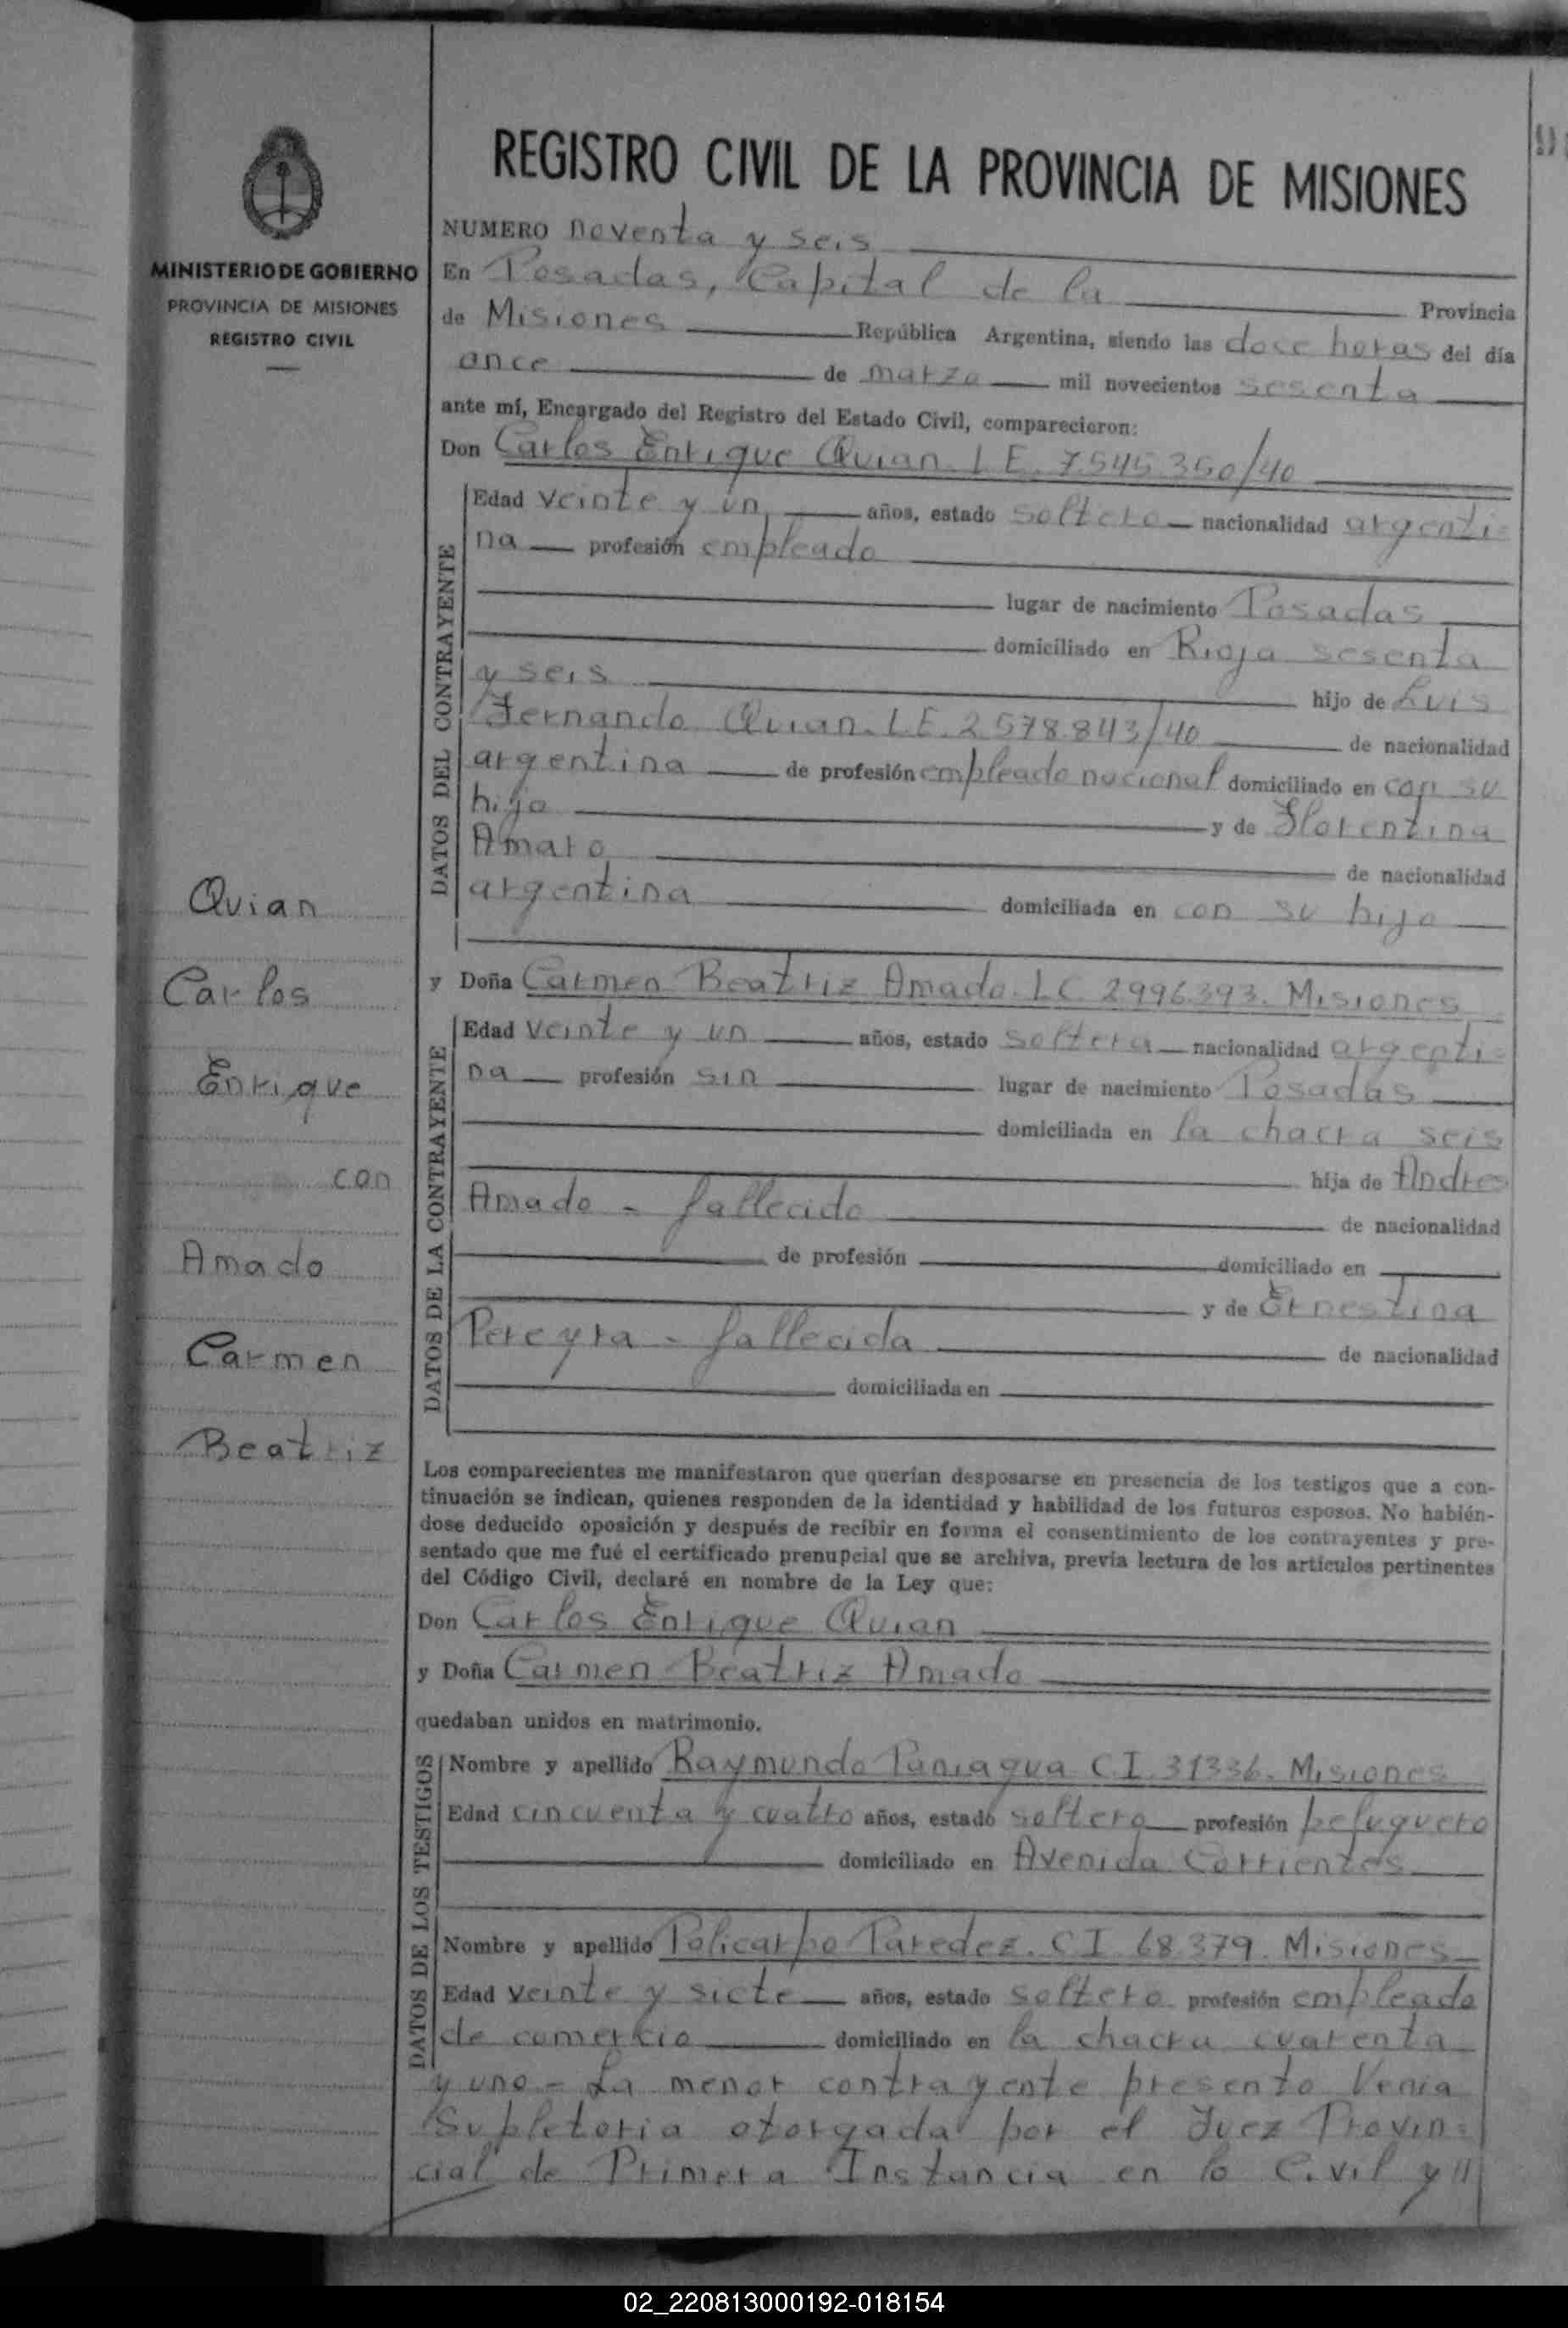 REGISTRO CIVIL DE LA PROVINCIA DE MISIONES
MINISTERIO DE GOBIERNO
PROVINCIA DE MISIONES
REGISTRO CIVIL
NUMERO noventa y seis
En Posadas, Capital de la Provincia
de Misiones República Argentina, siendo las doce horas del día
once de marzo mil novecientos sesenta
ante mí, Encargado del Registro del Estado Civil, comparecieron:
Don Carlos Enrique Quian. L E. 7.545.350/40
DATOS DEL CONTRAYENTE
Edad veinte y un años, estado soltero nacionalidad argenti=
na profesión empleado
lugar de nacimiento Posadas
domiciliado en Rioja sesenta
y seis hijo de Luis
Fernando Quian. L.E. 2.578.843/40 de nacionalidad
argentina de profesión empleado nacional domiciliado en con su
hijo y de Florentina
Amaro de nacionalidad
argentina domiciliada en con su hijo
Quian
Carlos
Enrique
con
Amado
Carmen
Beatriz
y Doña Carmen Beatriz Amado. L C. 2996.393. Misiones
DATOS DE LA CONTRAYENTE
Edad veinte y un años, estado soltera nacionalidad argenti=
na profesión sin lugar de nacimiento Posadas
domiciliada en la chacra seis
hija de Andres
Amado - fallecido de nacionalidad
de profesión domiciliado en
y de Ernestina
Pereyra - fallecida de nacionalidad
domiciliada en
Los comparecientes me manifestaron que querían desposarse en presencia de los testigos que a con-
tinuación se indican, quienes responden de la identidad y habilidad de los futuros esposos. No habién-
dose deducido oposición y después de recibir en forma el consentimiento de los contrayentes y pre-
sentado que me fué el certificado prenupcial que se archiva, previa lectura de los artículos pertinentes
del Código Civil, declaré en nombre de la Ley que:
Don Carlos Enrique Quian
y Doña Carmen Beatriz Amado
quedaban unidos en matrimonio.
DATOS DE LOS TESTIGOS
Nombre y apellido Raymundo Paniagua C I. 31336. Misiones
Edad cincuenta y cuatro años, estado soltero profesión peluquero
domiciliado en Avenida Corrientes
Nombre y apellido Policarpo Paredez. C I. 68.379. Misiones
Edad veinte y siete años, estado soltero profesión empleado
de comercio domiciliado en la chacra cuarenta
y uno - La menor contrayente presento Venia
Supletoria otorgada por el Juez Provin=
cial de Primera Instancia en lo Civil y //
02_220813000192-018154